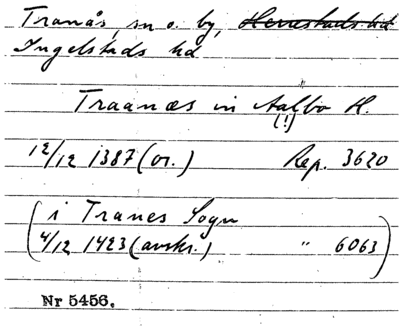 Tranås, sn o. by, Herrestads hd
Ingelstads hd
Traanæs in Aalbo H.
(!)
12/12 1387 (or.) Rep. 3620
(i Tranes Sogn
4/12 1423 (avskr.) " 6063)
Nr 5456.